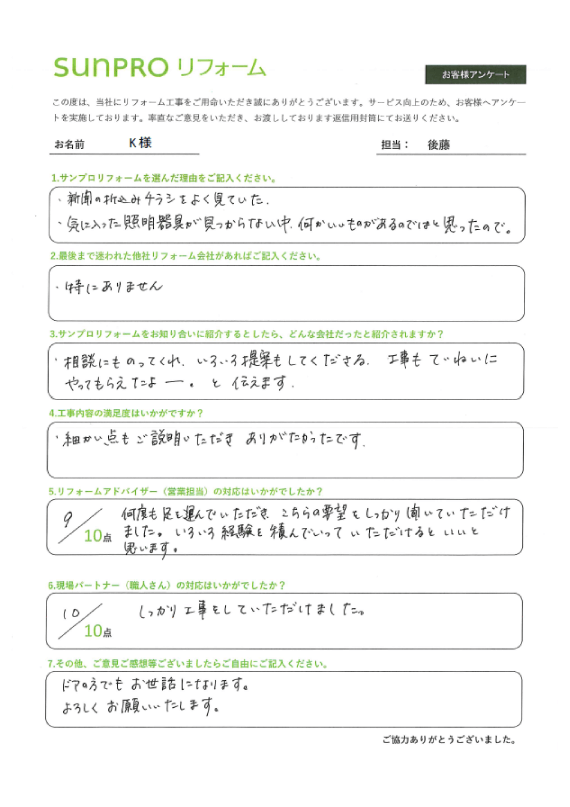 SUNPRO リフォーム
お客様アンケート
この度は、当社にリフォーム工事をご用命いただき誠にありがとうございます。サービス向上のため、お客様へアンケー
トを実施しております。率直なご意見をいただき、お渡ししております返信用封筒にてお送りください。
お名前 K様 担当： 後藤
1.サンプロリフォームを選んだ理由をご記入ください。
・新聞の折込みチラシをよく見ていた.
・気に入った照明器具が見つからない中、何かいいものがあるのではと思ったので。
2.最後まで迷われた他社リフォーム会社があればご記入ください。
・特にありません
3.サンプロリフォームをお知り合いに紹介するとしたら、どんな会社だったと紹介されますか？
・相談にものってくれ、いろいろ提案もしてくださる. 工事もていねいに
やってもらえたよー。と伝えます.
4.工事内容の満足度はいかがですか？
・細かい点もご説明いただき ありがたかったです.
5.リフォームアドバイザー（営業担当）の対応はいかがでしたか？
9/10点 何度も足を運んでいただき こちらの要望をしっかり聞いていただけ
ました。いろいろ経験を積んでいっていただけるといいと
思います。
6.現場パートナー（職人さん）の対応はいかがでしたか？
10/10点 しっかり工事をしていただけました。
7.その他、ご意見ご感想等ございましたらご自由にご記入ください。
ドアの方でもお世話になります。
よろしくお願いいたします。
ご協力ありがとうございました。